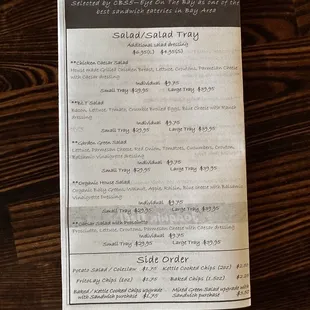 Selected by CBS5-Eye On The Bay as one of the
best sandwich eateries in Bay Area
Salad/Salad Tray
Additional salad dressing
**Chicken Caesar Salad
House Made Grilled Chicken Breast, Lettuce, Croutons, Parmesan Cheese
with Caesar dressing
Individual $9.75
Small Tray $39.95 Large Tray $59.95
**B.L.T Salad
Bacon, Lettuce, Tomato, Crumble Boiled Eggs, Blue Cheese with Ranch
dressing
Individual $9.75
Small Tray $39.95 Large Tray $59.95
**Garden Green Salad
Lettuce, Parmesan Cheese, Red Onion, Tomatoes, Cucumbers, Crouton,
Balsamic Vinaigrette Dressing
Individual $9.75
Small Tray $39.95 Large Tray $59.95
**Organic House Salad
Organic Baby Green, Walnut, Apple, Raisin, Blue Cheese with Balsamic
Vinaigrette Dressing
Individual $9.75
Small Tray $39.95 Large Tray $59.95
**Caesar Salad with
Romaine, Lettuce, Croutons, Parmesan Cheese with Caesar Dressing
Individual $9.75
Small Tray Large Tray
Side Order
Potato Salad / Coleslaw $1.75 Kettle Cooked Chips (2oz)
Fritos-ay Chips (1oz) Baked Chips (1.5oz)
Baked / Kettle Cooked Chips upgrade Mixed Green Salad upgrade
with Sandwich purchase $1.75 with Sandwich purchase